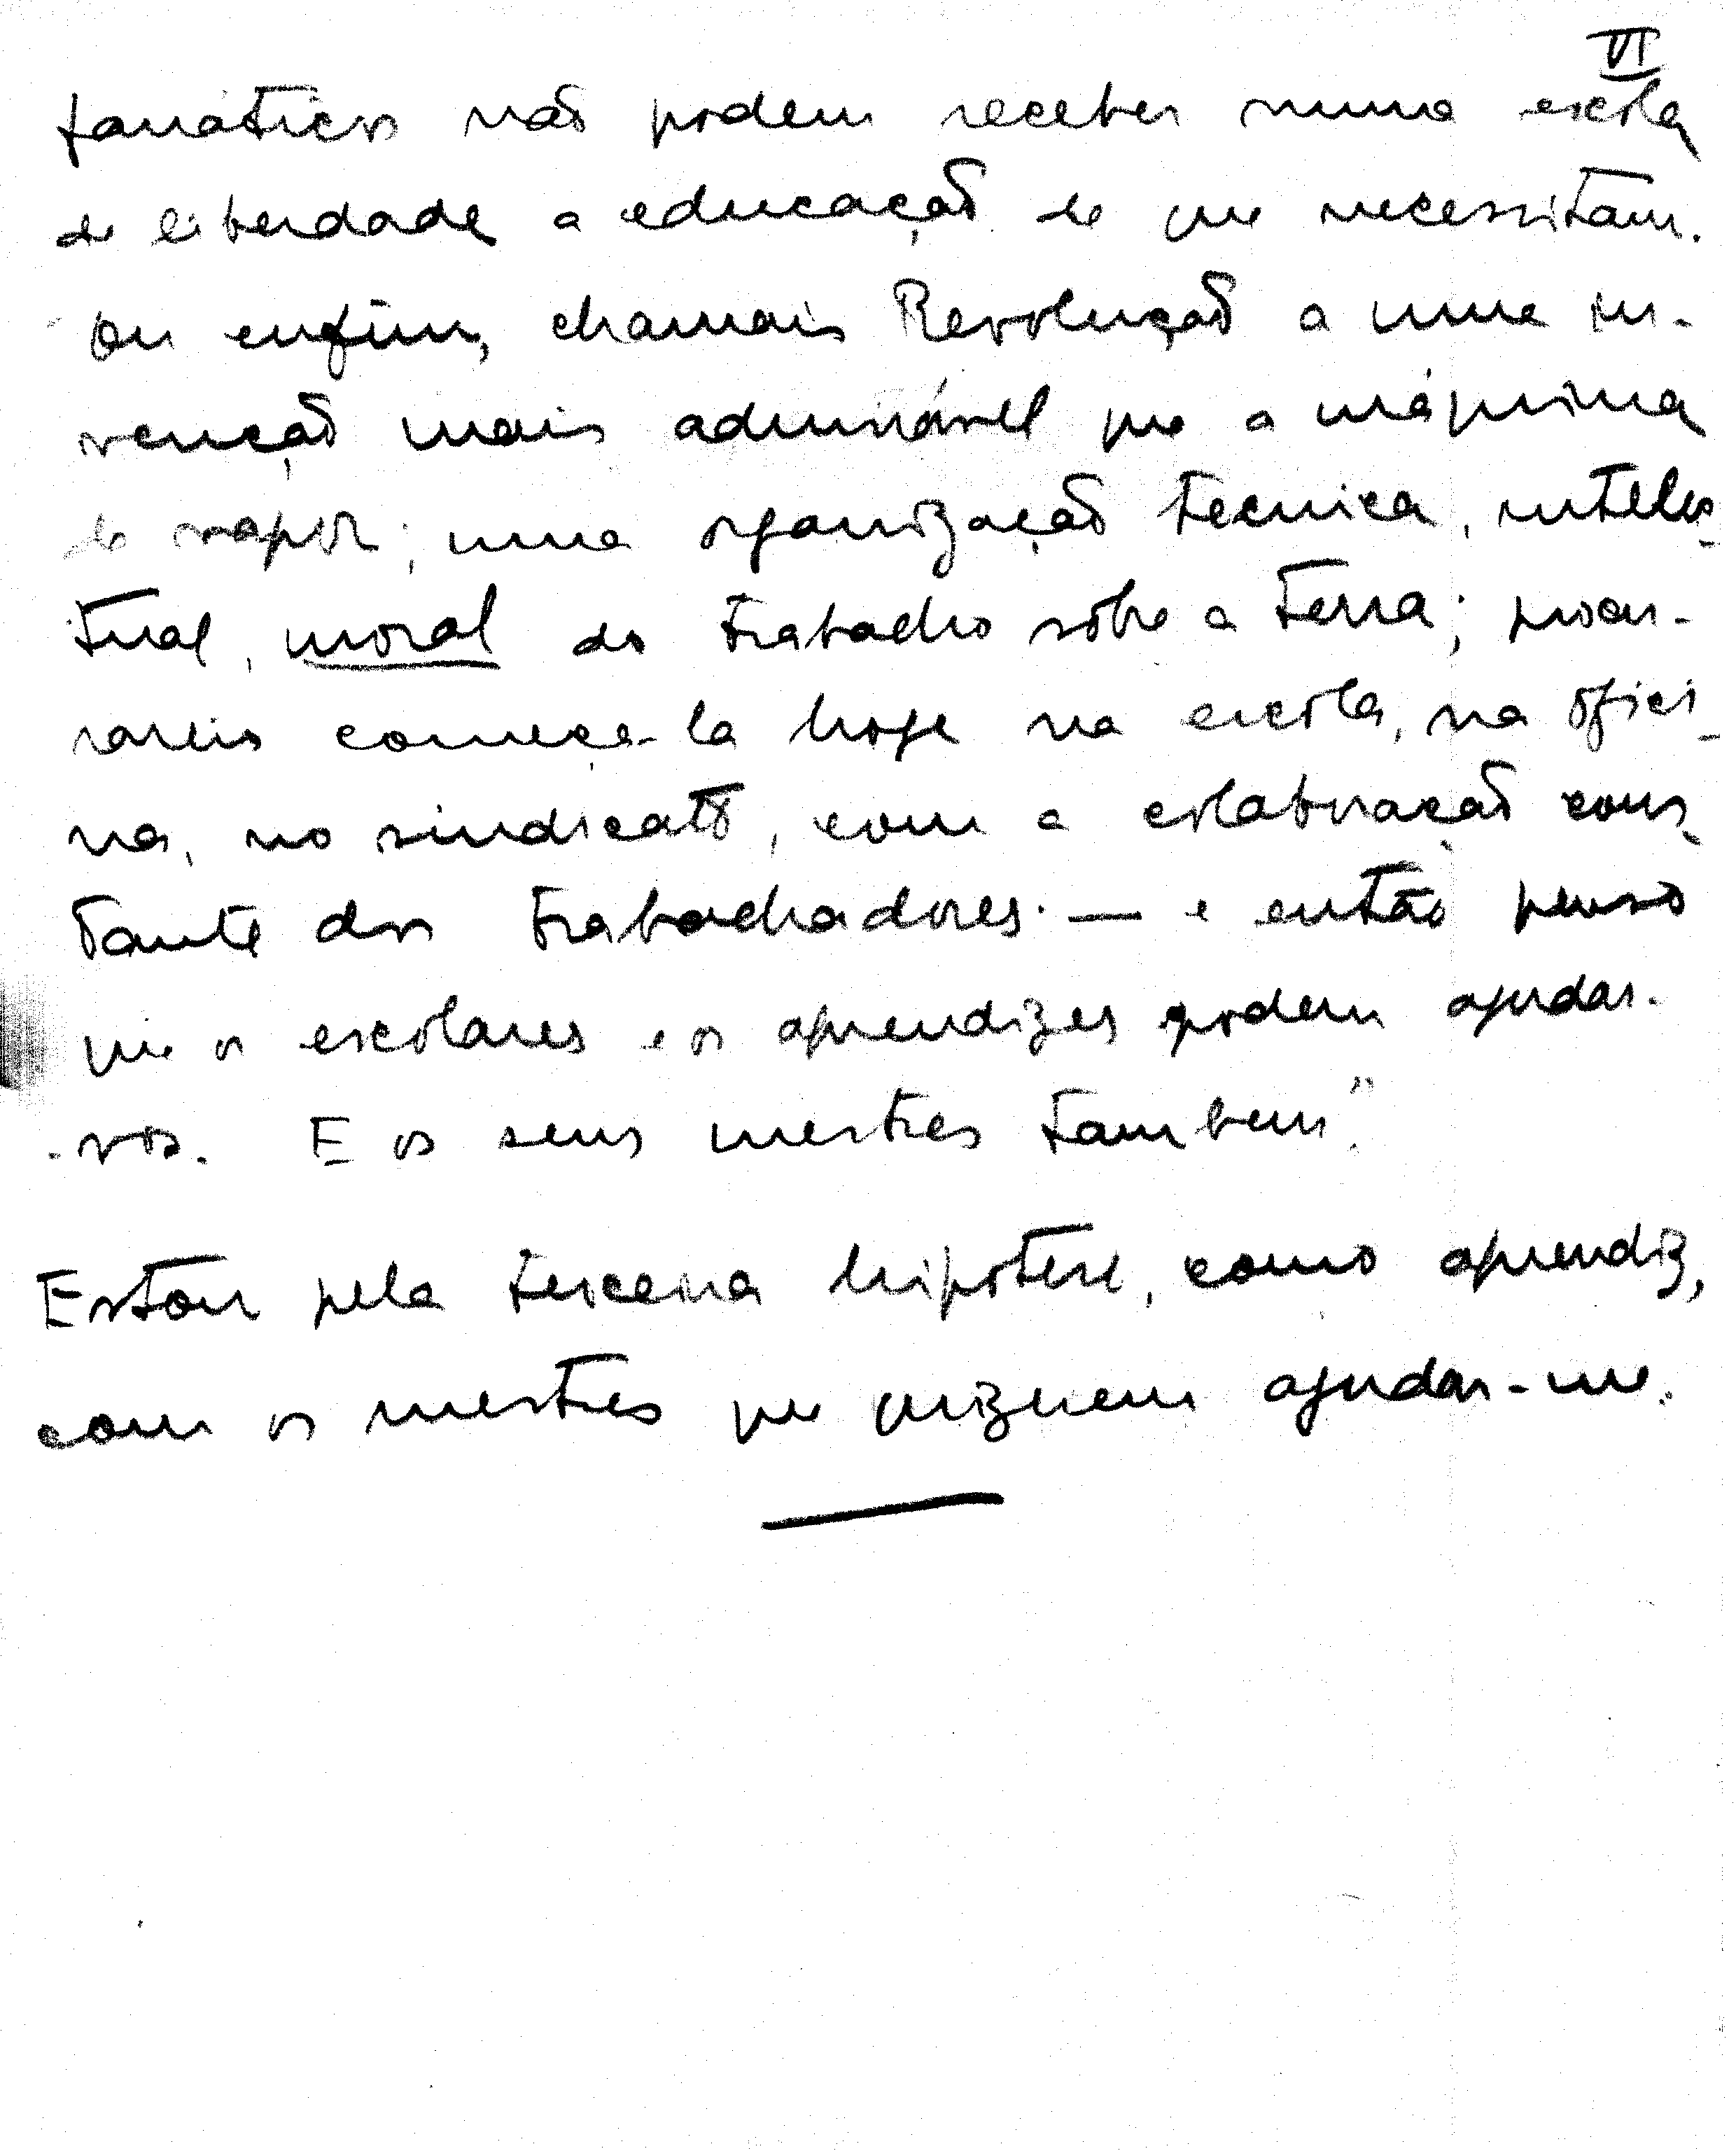 VI
fanáticos não podem receber numa escola
de liberdade a educação de que necessitam.
Ou enfim, chamais Revolução a uma in-
venção mais admirável que a máquina
de vapor; uma organização tecnica, intelec-
tual, moral do trabalho sôbre a terra; procu-
rareis começa-la hoje na escola, na ofici-
na, no sindicato, com a colaboração cons-
tante dos trabalhadores. — e então penso
que os escolares e os aprendizes podem ajudar-
-vos. E os seus mestres tambem".
Estou pela terceira hipotese, como aprendiz,
com os mestres que quizerem ajudar-me.